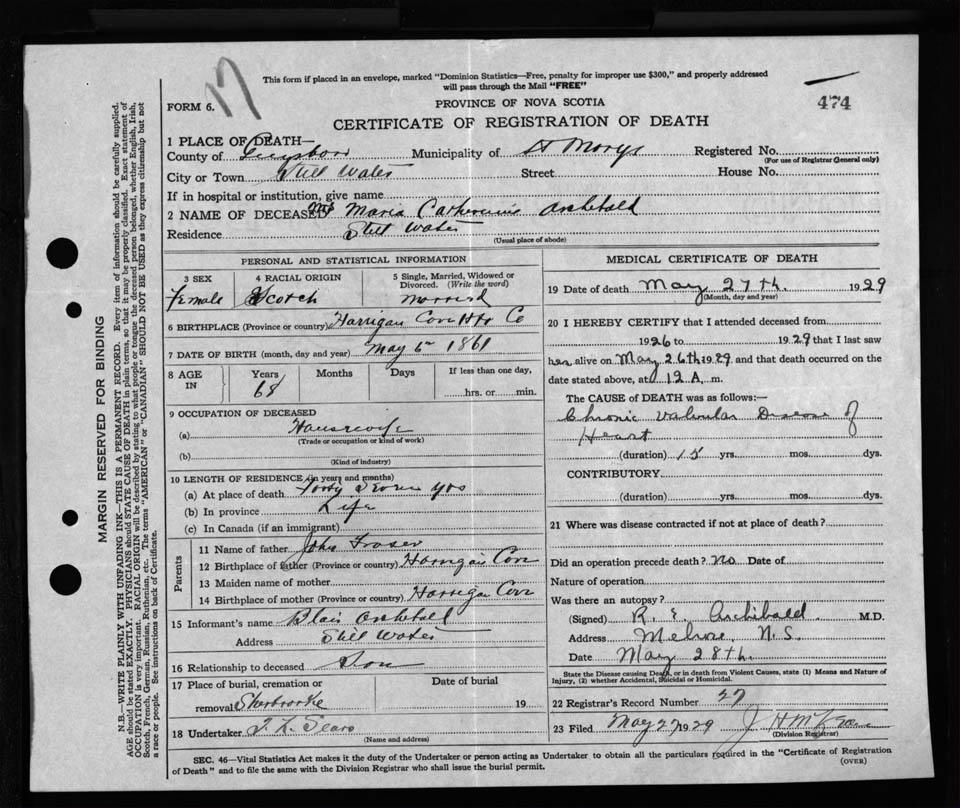 17
This form if placed in an envelope, marked "Dominion Statistics—Free, penalty for improper use $300," and properly addressed
will pass through the Mail "FREE"
FORM 6.
PROVINCE OF NOVA SCOTIA
474
CERTIFICATE OF REGISTRATION OF DEATH
1 PLACE OF DEATH—
County of Guysboro Municipality of St Marys Registered No.
(For use of Registrar General only)
City or Town Still Water Street House No.
If in hospital or institution, give name
2 NAME OF DECEASED Mrs Maria Catherine Archibald
Residence Still Water
(Usual place of abode)
PERSONAL AND STATISTICAL INFORMATION
3 SEX 4 RACIAL ORIGIN 5 Single, Married, Widowed or
Divorced. (Write the word)
Female Scotch Married
6 BIRTHPLACE (Province or country) Harrigan Cove Hfx Co
7 DATE OF BIRTH (month, day and year) May 6 1861
8 AGE IN Years Months Days If less than one day,
68 hrs. or min.
9 OCCUPATION OF DECEASED
(a) Housewife
(Trade or occupation or kind of work)
(b)
(Kind of industry)
10 LENGTH OF RESIDENCE (in years and months)
(a) At place of death Forty Seven yrs
(b) In province Life
(c) In Canada (if an immigrant)
Parents
11 Name of father John Fraser
12 Birthplace of father (Province or country) Harrigan Cove
13 Maiden name of mother
14 Birthplace of mother (Province or country) Harrigan Cove
15 Informant's name Blair Archibald
Address Still Water
16 Relationship to deceased Son
17 Place of burial, cremation or Date of burial
removal Sherbrooke 19
18 Undertaker Sears
(Name and address)
MEDICAL CERTIFICATE OF DEATH
19 Date of death May 27th. 1929
(Month, day and year)
20 I HEREBY CERTIFY that I attended deceased from
1926 to 1929 that I last saw
her alive on May 26th 1929 and that death occurred on the
date stated above, at 12 A. m.
The CAUSE of DEATH was as follows:—
Chronic Valvular Disease of
Heart
(duration) 15 yrs. mos. dys.
CONTRIBUTORY
(duration) yrs. mos. dys.
21 Where was disease contracted if not at place of death?
Did an operation precede death? no Date of
Nature of operation
Was there an autopsy?
(Signed) R. E. Archibald. M.D.
Address Melrose N.S.
Date May 28th.
State the Disease causing Death, or in death from Violent Causes, state (1) Means and Nature of
Injury, (2) whether Accidental, Suicidal or Homicidal.
22 Registrar's Record Number 27
23 Filed May 27 1929
(Division Registrar)
SEC. 46—Vital Statistics Act makes it the duty of the Undertaker or person acting as Undertaker to obtain all the particulars required in the "Certificate of Registration
of Death" and to file the same with the Division Registrar who shall issue the burial permit.
(OVER)
MARGIN RESERVED FOR BINDING
N.B.—WRITE PLAINLY WITH UNFADING INK—THIS IS A PERMANENT RECORD. Every item of information should be carefully supplied.
AGE should be stated EXACTLY. PHYSICIANS should STATE CAUSE OF DEATH in plain terms, so that it may be properly classified. Exact statement of
OCCUPATION is very important. RACIAL ORIGIN will be described by stating to what people or tongue the deceased person belonged, whether English, Irish,
Scotch, French, German, Russian, Ruthenian, etc. The terms "AMERICAN" or "CANADIAN" SHOULD NOT BE USED as they express citizenship but not
a race or people. See instructions on back of Certificate.